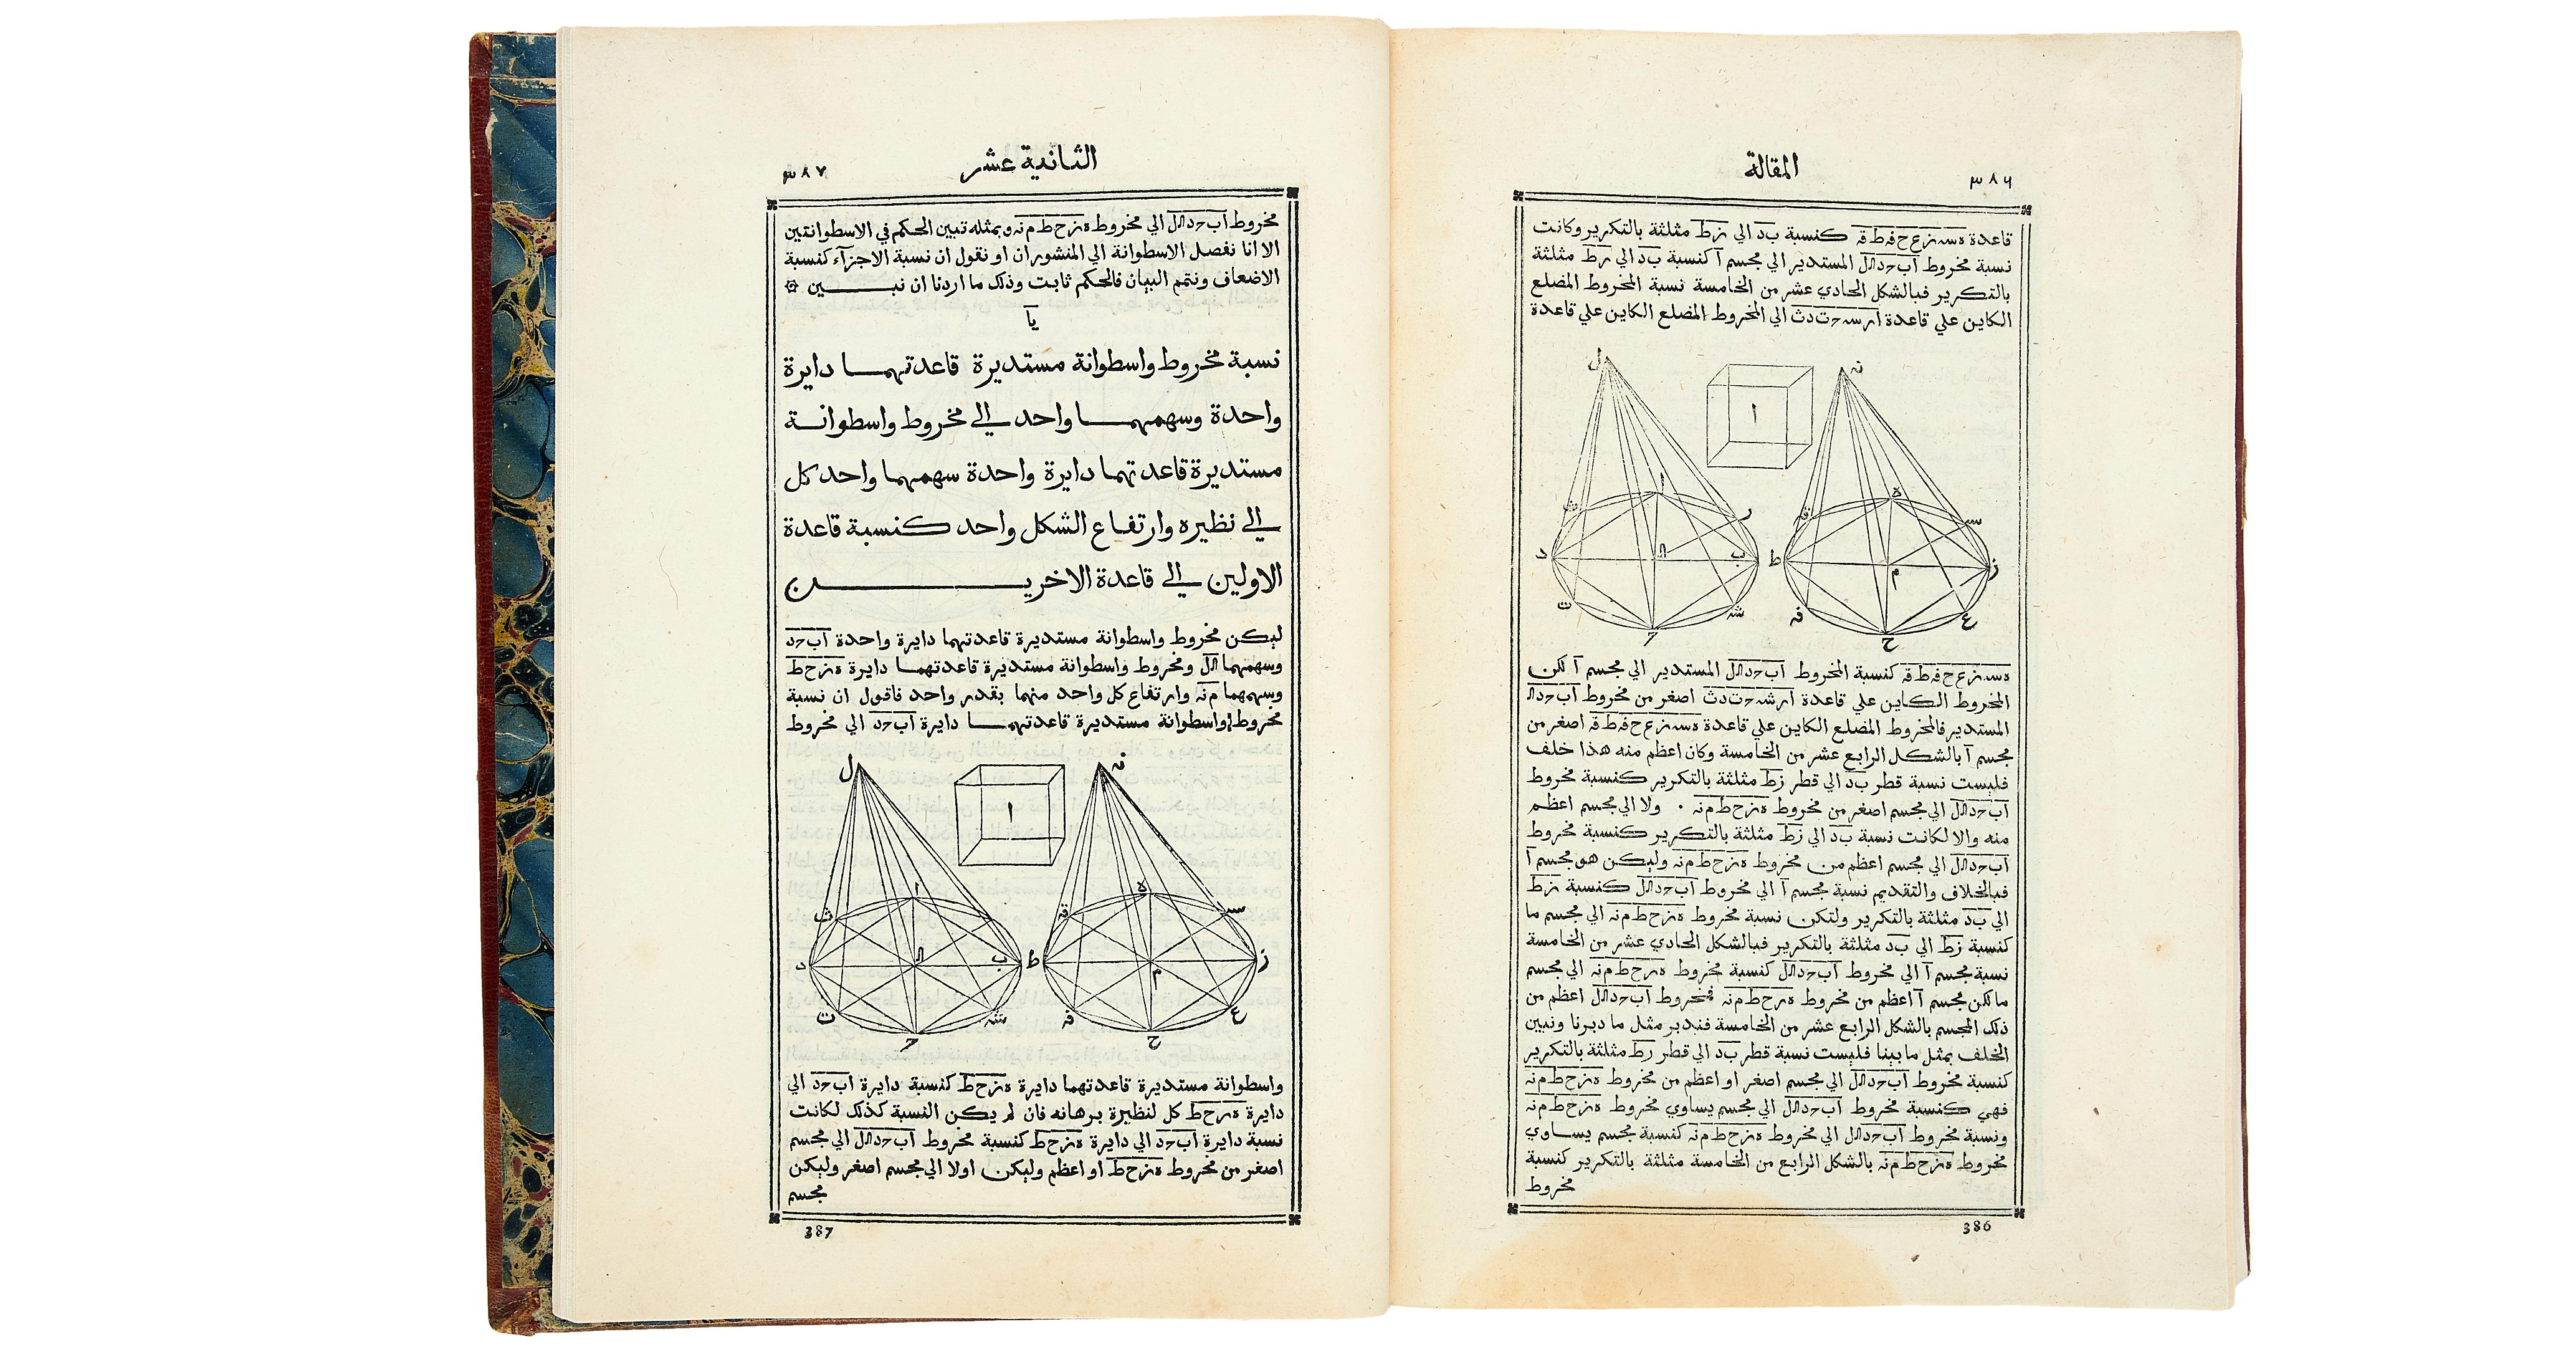 ٣٨٦
المقالة
قاعدة هسـ زع ح فه ط قه كنسبة بد الي زط مثلثة بالتكرير وكانت
نسبة مخروط المستدير الي مجسم آ كنسبة بد الي زط مثلثة
بالتكرير فبالشكل الحادي عشر من الخامسة نسبة المخروط المضلع
الكاين علي قاعدة الي المخروط المضلع الكاين علي قاعدة
ل
نه
ا
ا
ه
ث
ر
قه
سـ
د
ب
ط
م
ز
ت
شـ
فه
ع
ح
كنسبة المخروط المستدير الي مجسم آ لكن
المخروط الكاين علي قاعدة اصغر من مخروط
المستدير فالمخروط المضلع الكاين علي قاعدة اصغر من
مجسم آ بالشكل الرابع عشر من الخامسة وكان اعظم منه هذا خلف
فليست نسبة قطر بد الي قطر زط مثلثة بالتكرير كنسبة مخروط
الي مجسم اصغر من مخروط ه زح ط م نه . ولا الي مجسم اعظم
منه والا لكانت نسبة بد الي زط مثلثة بالتكرير كنسبة مخروط
الي مجسم اعظم من مخروط ه زح ط م نه وليكن هو مجسم آ
فبالخلاف والتقديم نسبة مجسم آ الي مخروط كنسبة زط
الي بد مثلثة بالتكرير ولتكن نسبة مخروط ه زح ط م نه الي مجسم ما
كنسبة زط الي بد مثلثة بالتكرير فبالشكل الحادي عشر من الخامسة
نسبة مجسم آ الي مخروط كنسبة مخروط ه زح ط م نه الي مجسم
ما لكن مجسم آ اعظم من مخروط ه زح ط م نه فمخروط اعظم من
ذلك المجسم بالشكل الرابع عشر من الخامسة فندبر مثل ما دبرنا ونبين
الخلف بمثل ما بينا فليست نسبة قطر بد الي قطر زط مثلثة بالتكرير
كنسبة مخروط الي مجسم اصغر او اعظم من مخروط ه زح ط م نه
فهي كنسبة مخروط الي مجسم يساوي مخروط ه زح ط م نه
ونسبة مخروط الي مخروط ه زح ط م نه كنسبة مجسم يساوي
مخروط ه زح ط م نه بالشكل الرابع من الخامسة مثلثة بالتكرير كنسبة
مخروط
386
الثانية عشر
٣٨٧
مخروط الي مخروط ه زح ط م نه وبمثله تبين الحكم في الاسطوانتين
الا انا نفصل الاسطوانة الي المنشوران او نقول ان نسبة الاجزآء كنسبة
الاضعاف ونتمم البيان فالحكم ثابت وذلك ما اردنا ان نبـــين ۞
يآ
نسبة مخروط واسطوانة مستديرة قاعدتهمـــا دايرة
واحدة وسهمهمـــا واحد الي مخروط واسطوانـــة
مستديرة قاعدتهما دايرة واحدة سهمهما واحد كل
الي نظيره وارتفـاع الشكل واحد كنسبة قاعدة
الاولين الي قاعدة الاخريـــــن
ليكن مخروط واسطوانة مستديرة قاعدتهما دايرة واحدة
وسهمهما ومخروط واسطوانة مستديرة قاعدتهمـــا دايرة ه زح ط
وسهمهما م نه وارتفاع كل واحد منهما بقدر واحد فاقول ان نسبة
مخروط واسطوانة مستديرة قاعدتهمـــا دايرة الي مخروط
ل
نه
ا
ا
ه
ث
قه
سـ
د
ب
ط
م
ز
ت
شـ
فه
ع
ح
واسطوانة مستديرة قاعدتهما دايرة ه زح ط كنسبة دايرة الي
دايرة ه زح ط كل لنظيرة برهانه فان لم يكن النسبة كذلك لكانت
نسبة دايرة الي دايرة ه زح ط كنسبة مخروط الي مجسم
اصغر من مخروط ه زح ط او اعظم وليكن اولا الي مجسم اصغر وليكن
مجسم
387